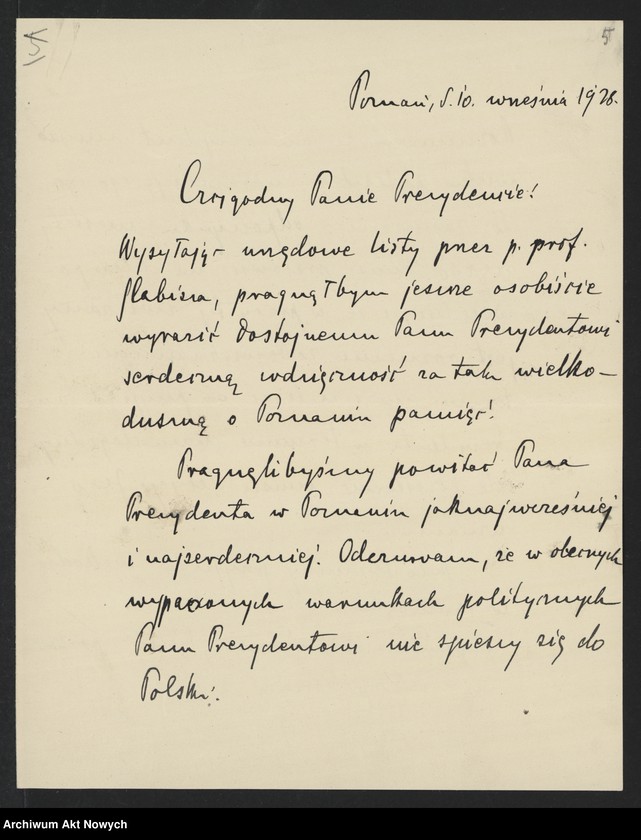 5
5
Poznań, d. 10. września 1928.
Czcigodny Panie Prezydencie!
Wysyłając urzędowe listy przez p. prof.
Glabisza, pragnąłbym jeszcze osobiście
wyrazić Dostojnemu Panu Prezydentowi
serdeczną wdzięczność za tak wielko-
duszną o Poznaniu pamięć!
Pragnęlibyśmy powitać Pana
Prezydenta w Poznaniu jaknajwcześniej
i najserdeczniej! Odczuwam, że w obecnych
wypaczonych warunkach politycznych
Panu Prezydentowi nie spieszy się do
Polski!
Archiwum Akt Nowych